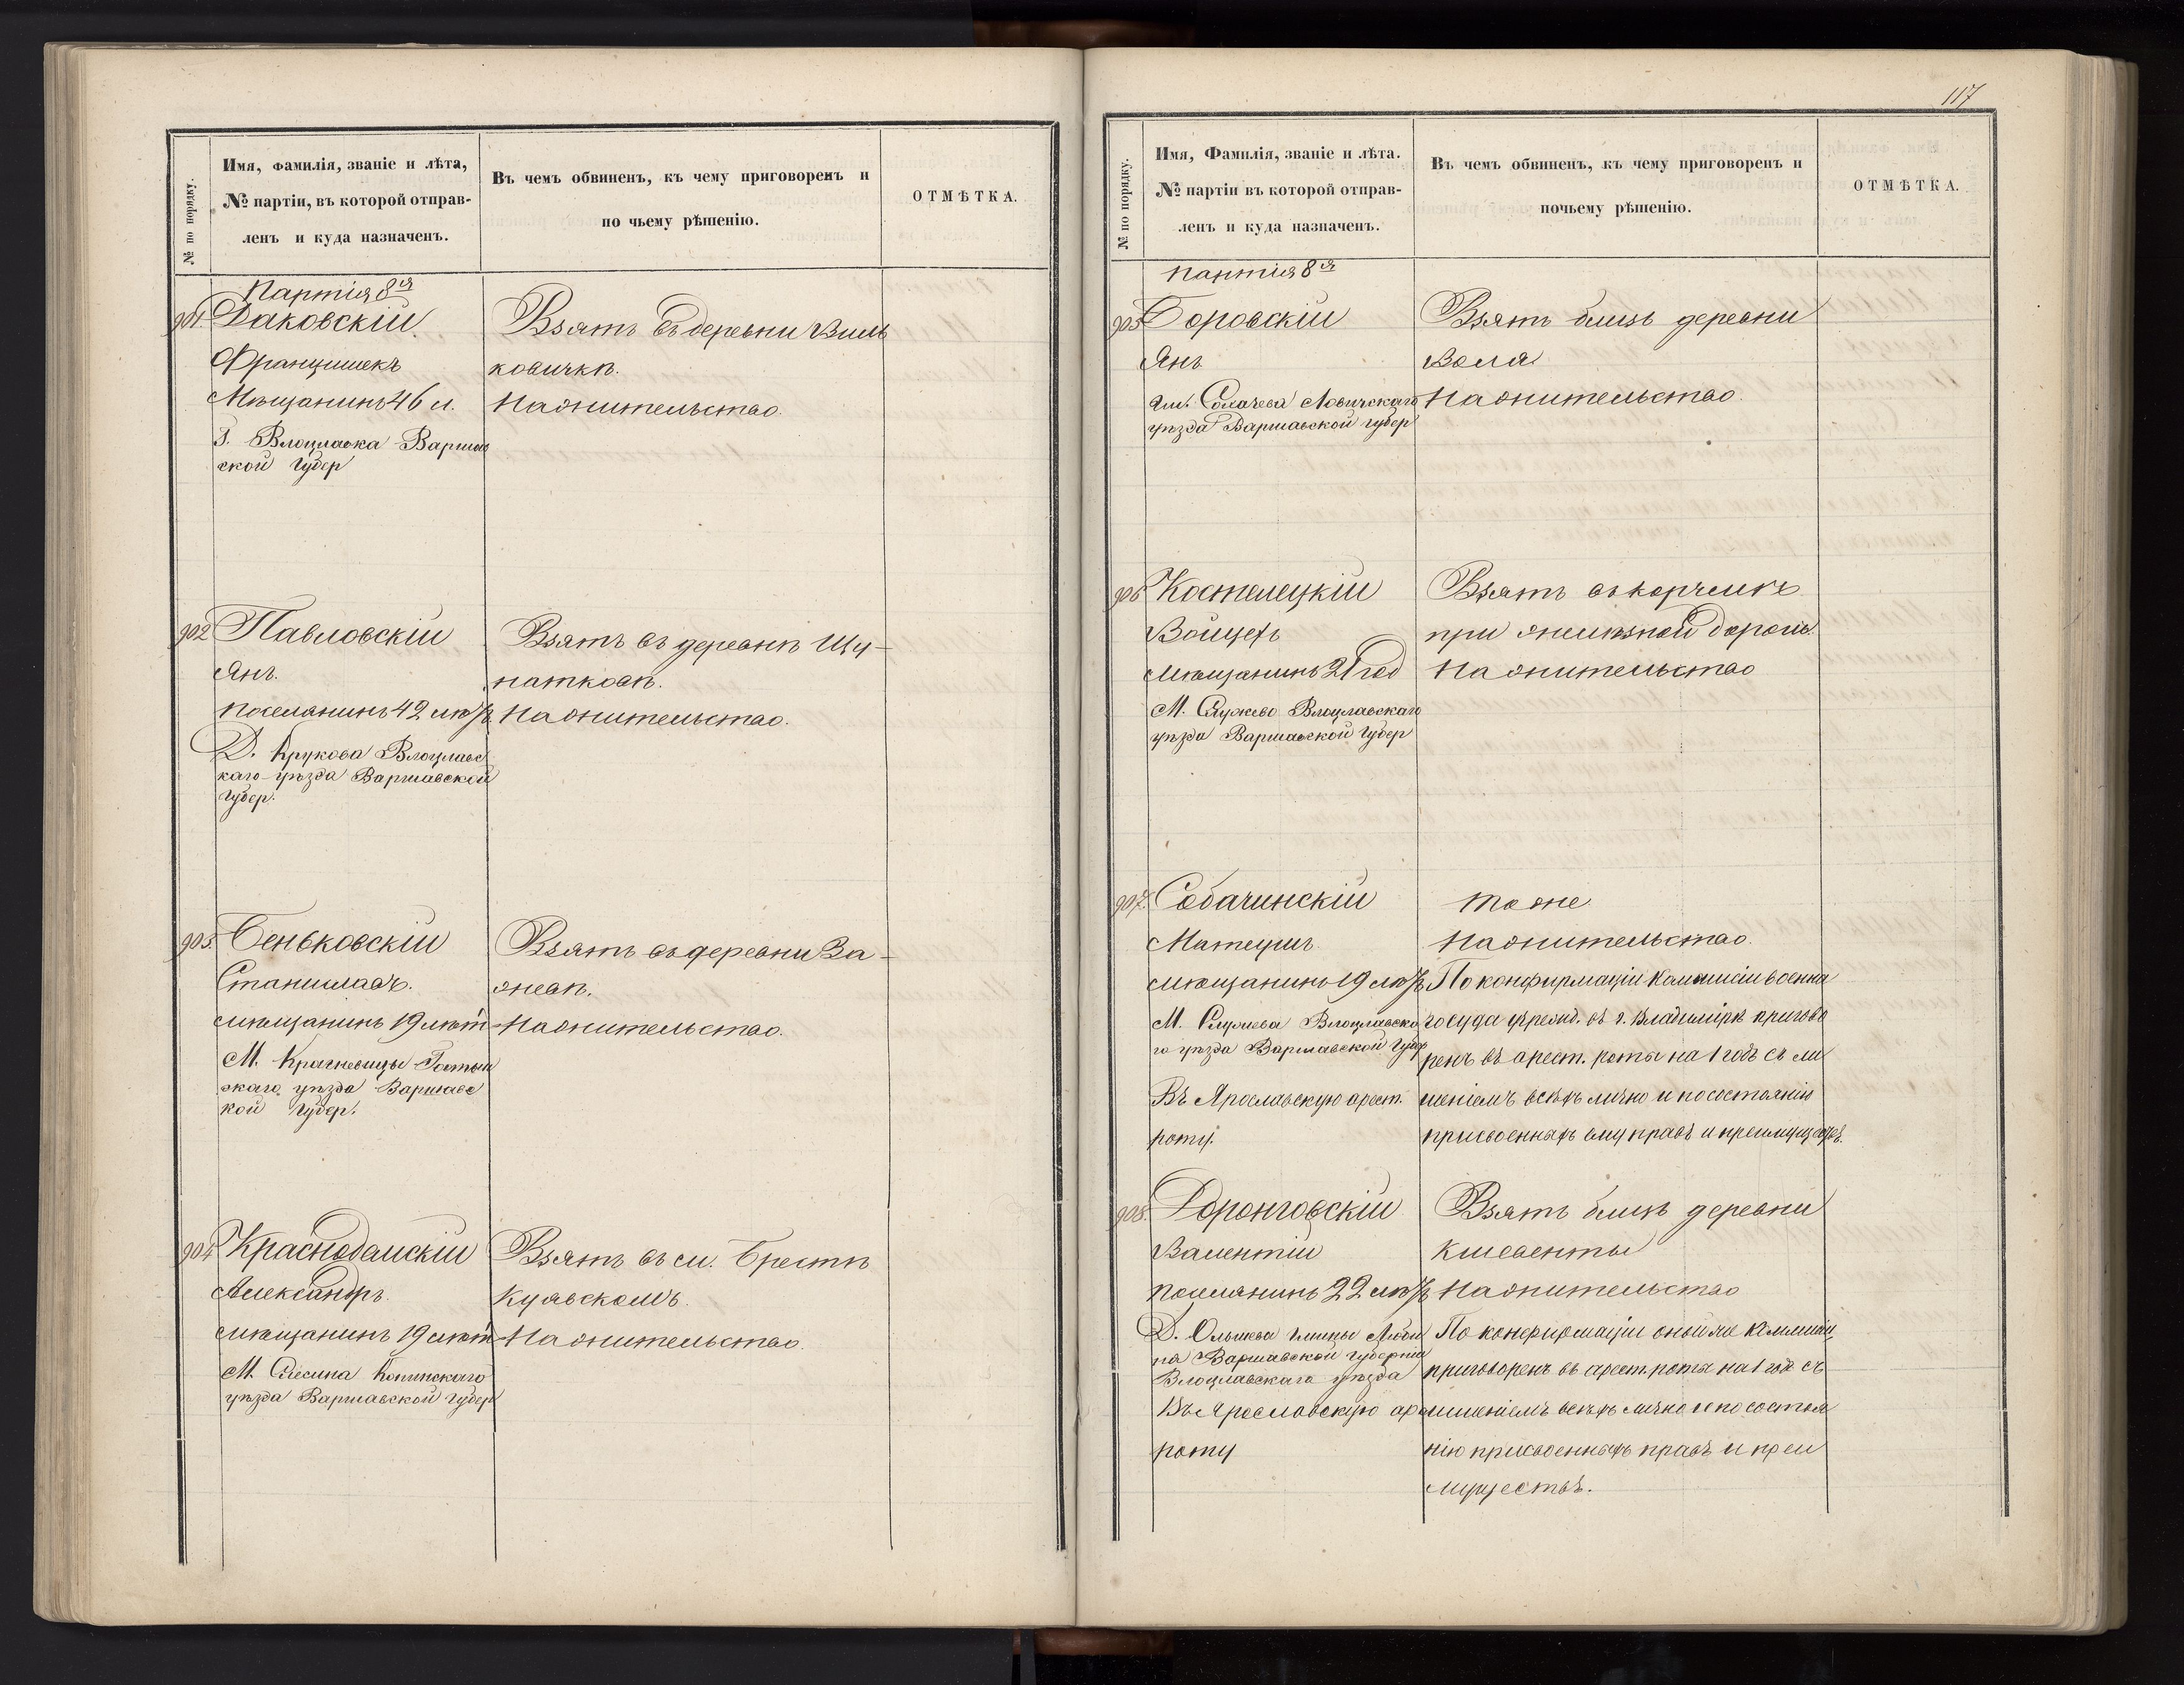 № по порядку.
Имя, фамилія, званіе и лѣта,
№ партіи, въ которой отправ-
ленъ и куда назначенъ.
Въ чемъ обвиненъ, къ чему приговоренъ и
по чьему рѣшенію.
ОТМѢТКА.
Партія 8я
901. Даковскій
Францишекъ
Мѣщанинъ 46 л.
Г. Влоцлавка Варшав
ской Губер
Взятъ въ деревни Виль
ковичкѣ.
На жительство.
902 Павловскій
Янъ.
поселянинъ 42 лѣтъ
Д. Крукова Влоцлавс
каго уѣзда Варшавской
Губер.
Взятъ въ деревнѣ Щу-
патковѣ.
На жительство.
903. Беньковскій
Станиславъ.
мѣщанинъ 19 лѣт
М. Кросневицы Гостын
скаго уѣзда Варшавс
кой Губер.
Взятъ въ деревни За-
жевѣ.
На жительство.
904 Краснодемскій
Александръ.
мѣщанинъ 19 лѣт
М. Слесина Конинскаго
уѣзда Варшавской Губер
Взятъ въ м. Брестѣ
Куявскомъ.
На жительство.
117
№ по порядку.
Имя, Фамилія, званіе и лѣта.
№ партіи въ которой отправ-
ленъ и куда назначенъ.
Въ чемъ обвиненъ, къ чему приговоренъ и
почьему рѣшенію.
ОТМѢТКА.
партія 8я
905 Боровскій
Янъ
Ловичскаго
уѣзда Варшавской губер
Взятъ близь деревни
Воля
На жительство.
906 Костелецкій
Войцехъ
мѣщанинъ 21 год
М. Служево Влоцлавскаго
уѣзда Варшавской Губер
Взятъ въ корчмѣ
при желѣзной дорогѣ.
На жительство
907. Собачинскій
Матеушъ.
мѣщанинъ 19 лѣтъ
М. Служева Влоцлавска
го уѣзда Варшавской Губер
Въ Ярославскую арест.
роту.
тоже
На жительство.
По конфирмаціи Коммисіи военна
го суда учрежд. въ г. Владимірѣ пригово
ренъ въ арест. роты на 1 годъ съ ли
шеніемъ всѣхъ лично и по состоянію
присвоенныхъ ему правъ и преимуществъ.
908. Доронговскій
Валентій
поселянинъ 22 лѣтъ
Д. Ольшева гмины Люби
на Варшавской губерніи
Влоцлавскаго уѣзда
Въ Ярославскую ар
роту
Взятъ близь деревни
Кшевенты
На жительство
По конфирмаціи оной же Коммисіи
приговоренъ въ арест. роты на 1 год съ
лишеніемъ всѣхъ лично и по состоя
нію присвоенныхъ правъ и преи
муществъ.